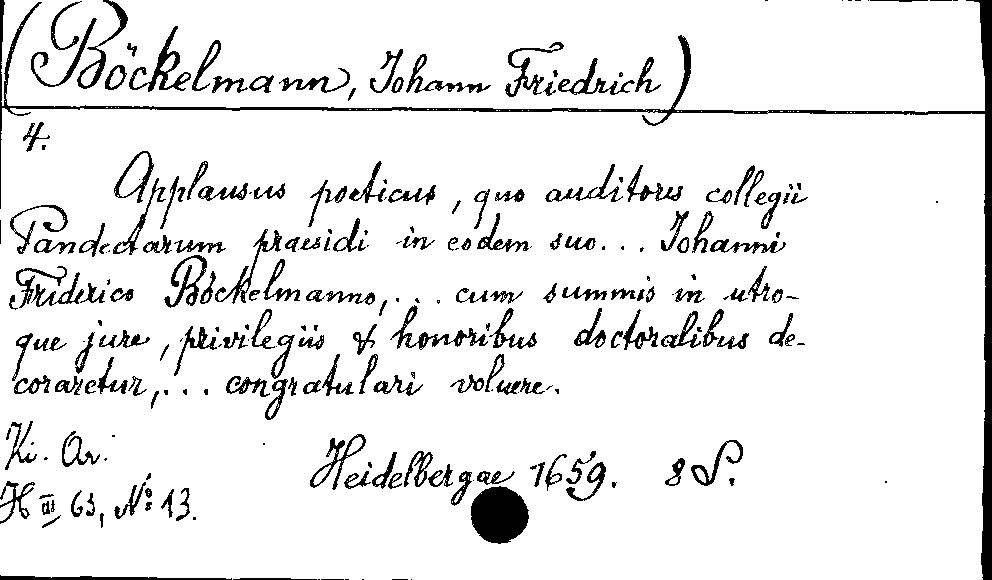 (Böckelmann, Johann Friedrich)
4.
Applausus poeticus, quo auditores collegii
Pandectarum praesidi in eodem suo... Johanni
Friderico Böckelmanno,... cum summis in utro-
que jure, privilegiis & honoribus doctoralibus de-
coraretur,... congratulari voluere.
Ki. Ar.
Heidelbergae 1659. 8 S.
H III 63, No 13.